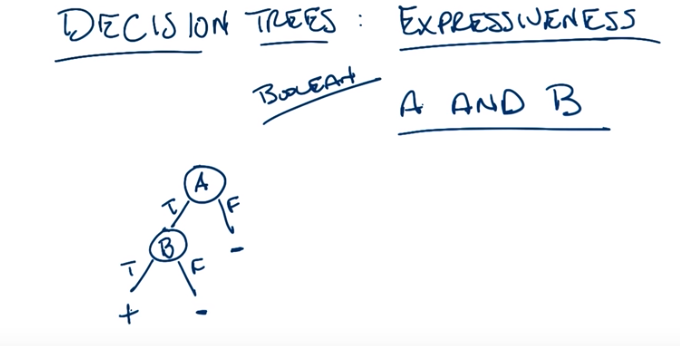 DECISION TREES : EXPRESSIVENESS
BOOLEAN
A AND B
A
T F
B -
T F
+ -